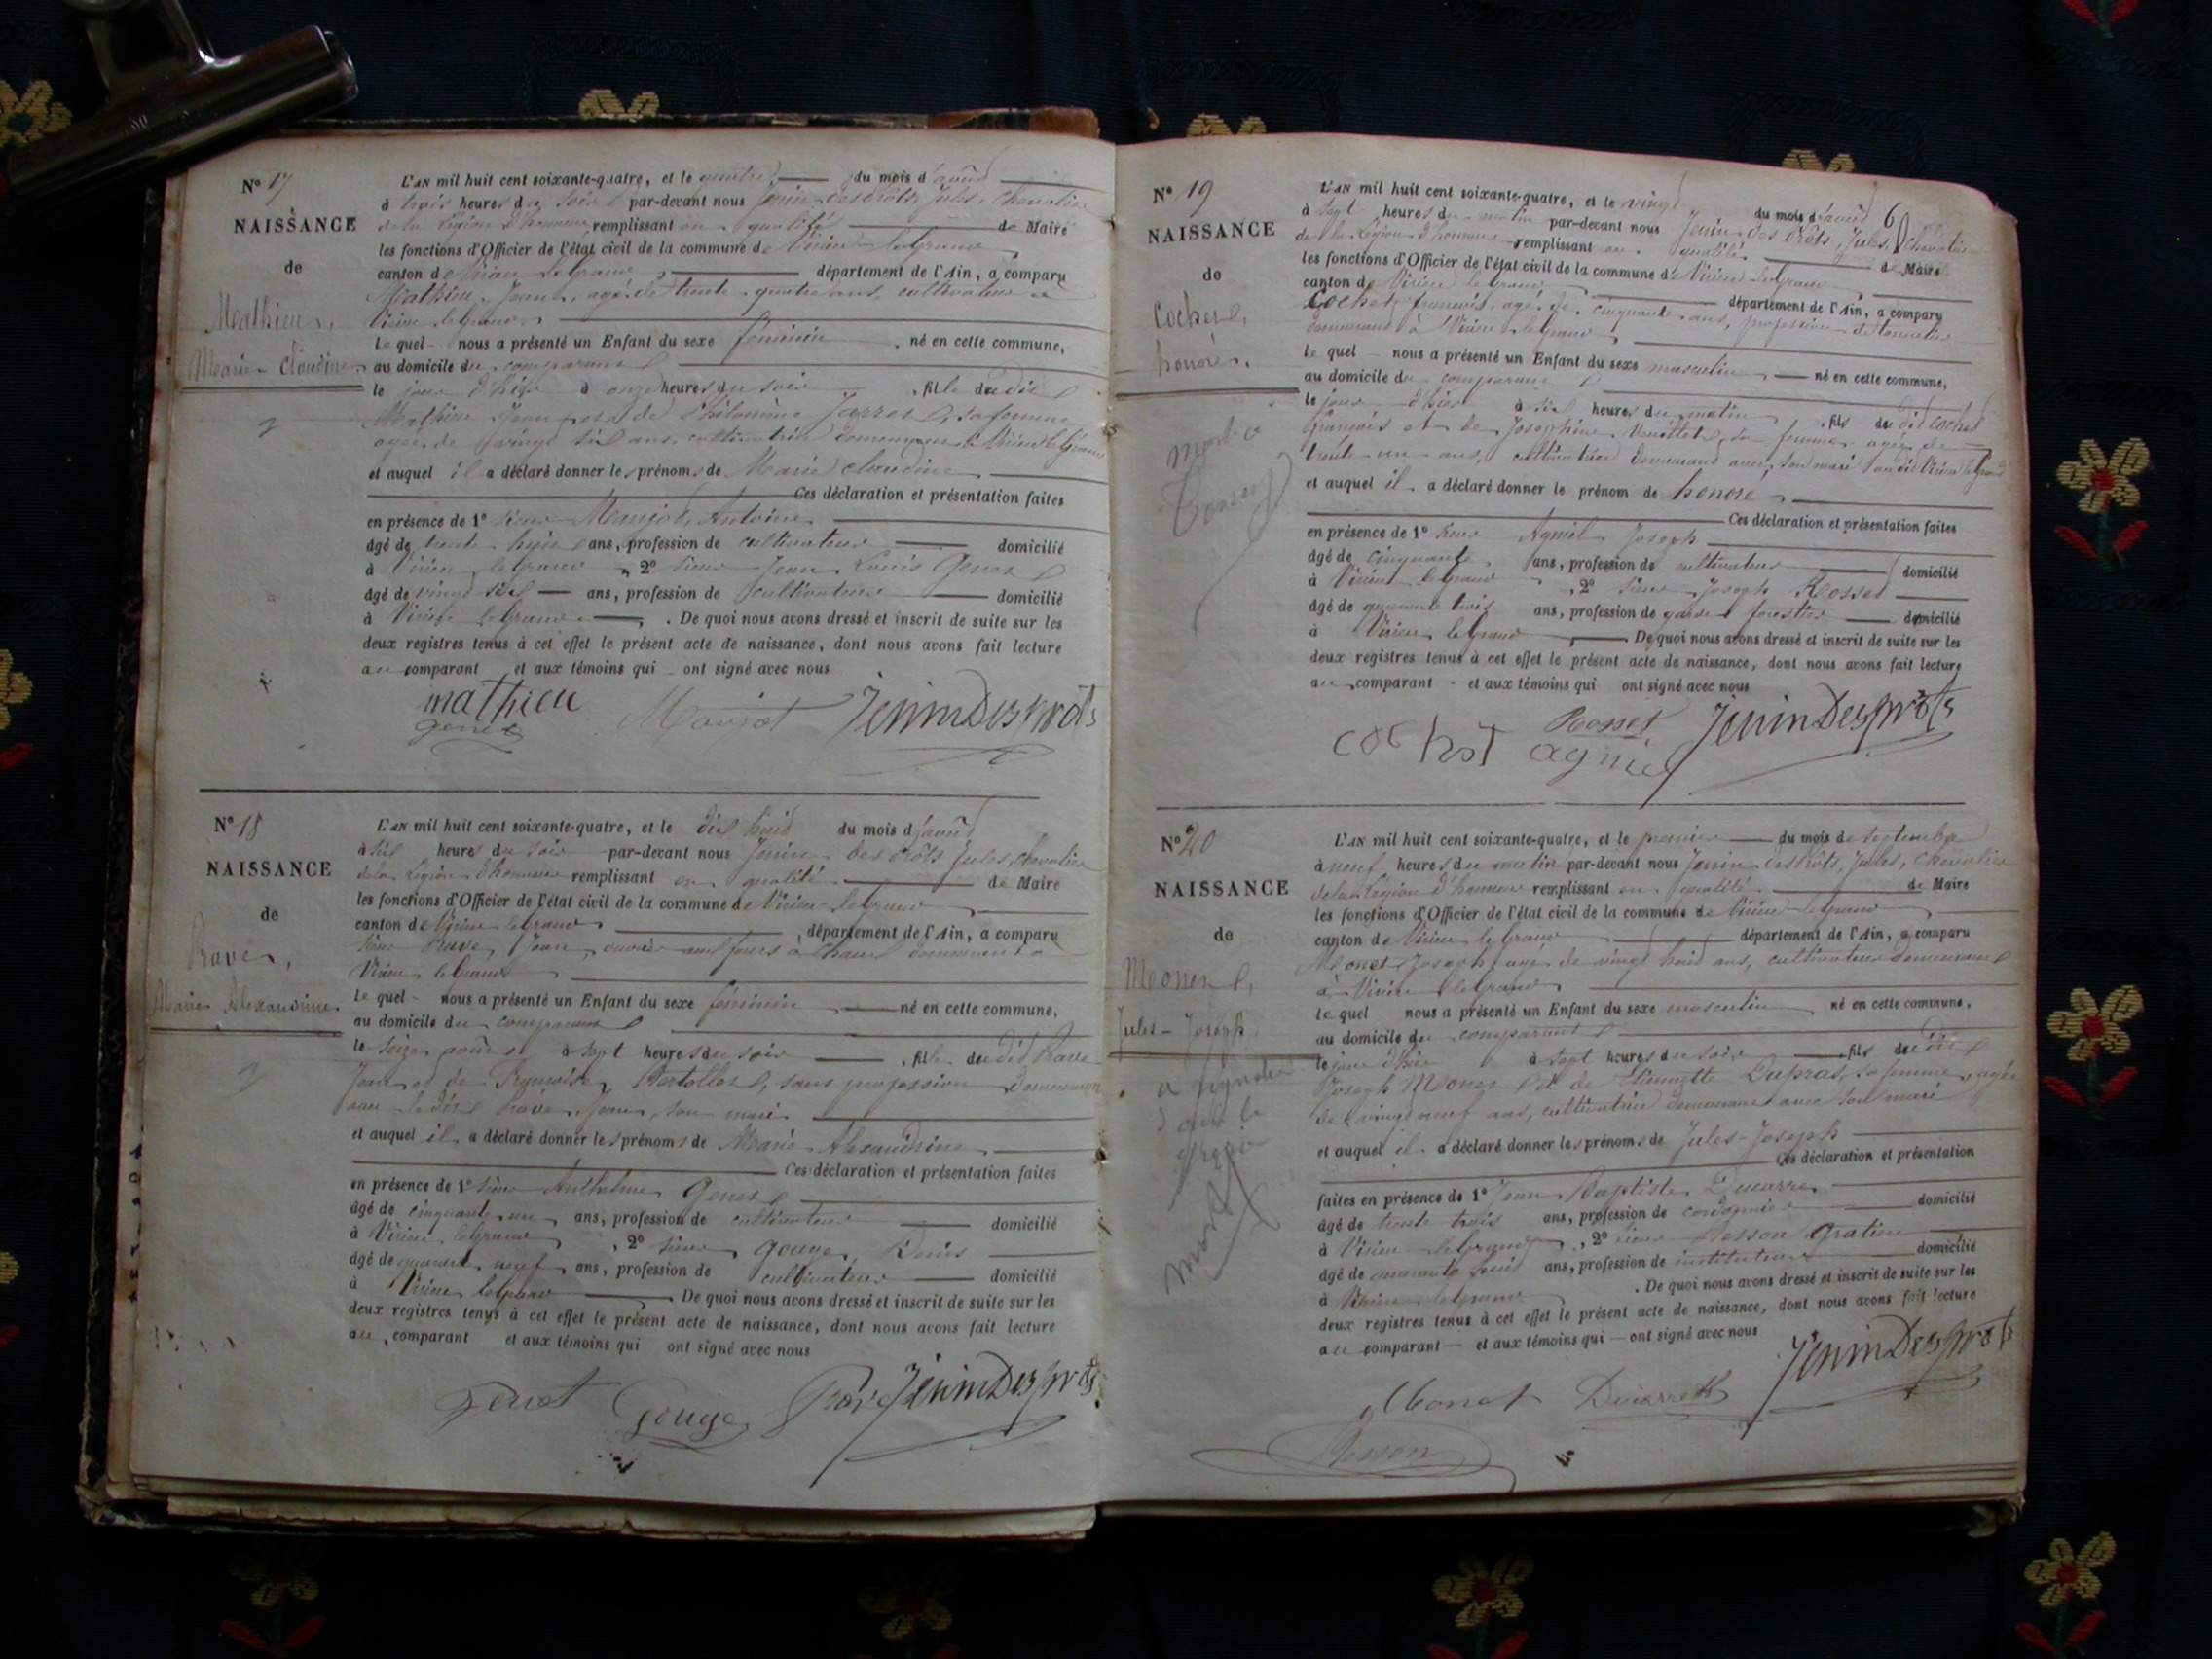 N° 17
NAISSANCE
de
Mathieu,
Marie Claudine
L'AN mil huit cent soixante-quatre, et le quatre du mois d'août
à trois heures du soir par-devant nous Jenin des prôts, Jules, chevalier
de la Légion d'honneur remplissant en qualité de Maire
les fonctions d'Officier de l'état civil de la commune de Virieu le Grand
canton de Virieu le Grand, département de l'Ain, a comparu
Mathieu, Jean, agé de trente quatre ans, cultivateur à
Virieu le Grand.
Le quel nous a présenté un Enfant du sexe féminin, né en cette commune,
au domicile du comparant
le jour d'hier à onze heures du soir, fille du dit
Mathieu Jean et de Philomène Jarret, sa femme
agée de vingt six ans, cultivatrice demeurant à Virieu le Grand
et auquel il a déclaré donner les prénoms de Marie Claudine
Ces déclaration et présentation faites
en présence de 1° sieur Maujot, Antoine
âgé de trente ans, profession de cultivateur domicilié
à Virieu le Grand, 2° sieur Jean Louis Genet
âgé de vingt six ans, profession de cultivateur domicilié
à Virieu le Grand. De quoi nous avons dressé et inscrit de suite sur les
deux registres tenus à cet effet le présent acte de naissance, dont nous avons fait lecture
au comparant et aux témoins qui ont signé avec nous
mathieu Maujot JeninDesprôts
genet
N° 18
NAISSANCE
de
Prave,
Marie Alexandrine
L'AN mil huit cent soixante-quatre, et le dix huit du mois d'août
à six heures du soir par-devant nous Jenin des prôts Jules, chevalier
de la Légion d'honneur remplissant en qualité de Maire
les fonctions d'Officier de l'état civil de la commune de Virieu-le Grand
canton de Virieu le Grand, département de l'Ain, a comparu
sieur Prave, Jean, ouvrier aux fours à chaux demeurant à
Virieu le Grand
Le quel nous a présenté un Enfant du sexe féminin né en cette commune,
au domicile du comparant
le seize août à sept heures du soir, fille du dit Prave
Jean et de Françoise Bertollet, sans profession demeurant
avec le dit Prave Jean, son mari
et auquel il a déclaré donner les prénoms de Marie Alexandrine
Ces déclaration et présentation faites
en présence de 1° sieur Anthelme Genet
âgé de cinquante un ans, profession de cultivateur domicilié
à Virieu le Grand, 2° sieur Gouge, Denis
âgé de quarante neuf ans, profession de cultivateur domicilié
à Virieu le Grand De quoi nous avons dressé et inscrit de suite sur les
deux registres tenus à cet effet le présent acte de naissance, dont nous avons fait lecture
au comparant et aux témoins qui ont signé avec nous
Genet Gouge Prave JeninDesprôts
N° 19
NAISSANCE
de
Cochet,
honoré.
mort
L'AN mil huit cent soixante-quatre, et le vingt du mois d'août 6
à sept heures du matin par-devant nous Jenin des prôts, Jules, chevalier
de la Légion d'honneur remplissant en qualité de Maire
les fonctions d'Officier de l'état civil de la commune de Virieu le Grand
canton de Virieu le Grand, département de l'Ain, a comparu
Cochet françois, agé de cinquante ans, profession de tonnelier
demeurant à Virieu le Grand
le quel nous a présenté un Enfant du sexe masculin né en cette commune,
au domicile du comparant
le jour d'hier à six heures du matin, fils du dit Cochet
françois et de Josephine Vuillet, sa femme agée de
trente un ans, cultivatrice demeurant avec son mari au dit Virieu le Grand
et auquel il a déclaré donner le prénom de honoré
Ces déclaration et présentation faites
en présence de 1° sieur Agniel Joseph
âgé de cinquante ans, profession de cultivateur domicilié
à Virieu le Grand, 2° sieur Joseph Rosset
âgé de quarante trois ans, profession de garde forestier domicilié
à Virieu le Grand De quoi nous avons dressé et inscrit de suite sur les
deux registres tenus à cet effet le présent acte de naissance, dont nous avons fait lecture
au comparant et aux témoins qui ont signé avec nous
cochet Rosset agniel JeninDesprôts
N° 20
NAISSANCE
de
Monet,
Jules-Joseph
mort
L'AN mil huit cent soixante-quatre, et le premier du mois de septembre
à neuf heures du matin par-devant nous Jenin des prôts, Jules, chevalier
de la Légion d'honneur remplissant en qualité de Maire
les fonctions d'Officier de l'état civil de la commune de Virieu le Grand
canton de Virieu le Grand département de l'Ain, a comparu
Monet Joseph, agé de vingt huit ans, cultivateur demeurant
à Virieu le Grand
Le quel nous a présenté un Enfant du sexe masculin né en cette commune,
au domicile du comparant
le jour d'hier à sept heures du soir, fils du dit
Joseph Monet et de Dupras, sa femme, agée
de vingt neuf ans, cultivatrice demeurant avec son mari
et auquel il a déclaré donner les prénoms de Jules-Joseph
Ces déclaration et présentation
faites en présence de 1° Jean Baptiste
âgé de trente trois ans, profession de cordonnier domicilié
à Virieu le Grand, 2° sieur Besson Gratien
âgé de quarante huit ans, profession de instituteur domicilié
à Virieu le Grand. De quoi nous avons dressé et inscrit de suite sur les
deux registres tenus à cet effet le présent acte de naissance, dont nous avons fait lecture
au comparant et aux témoins qui ont signé avec nous
Monet JeninDesprôts
Besson